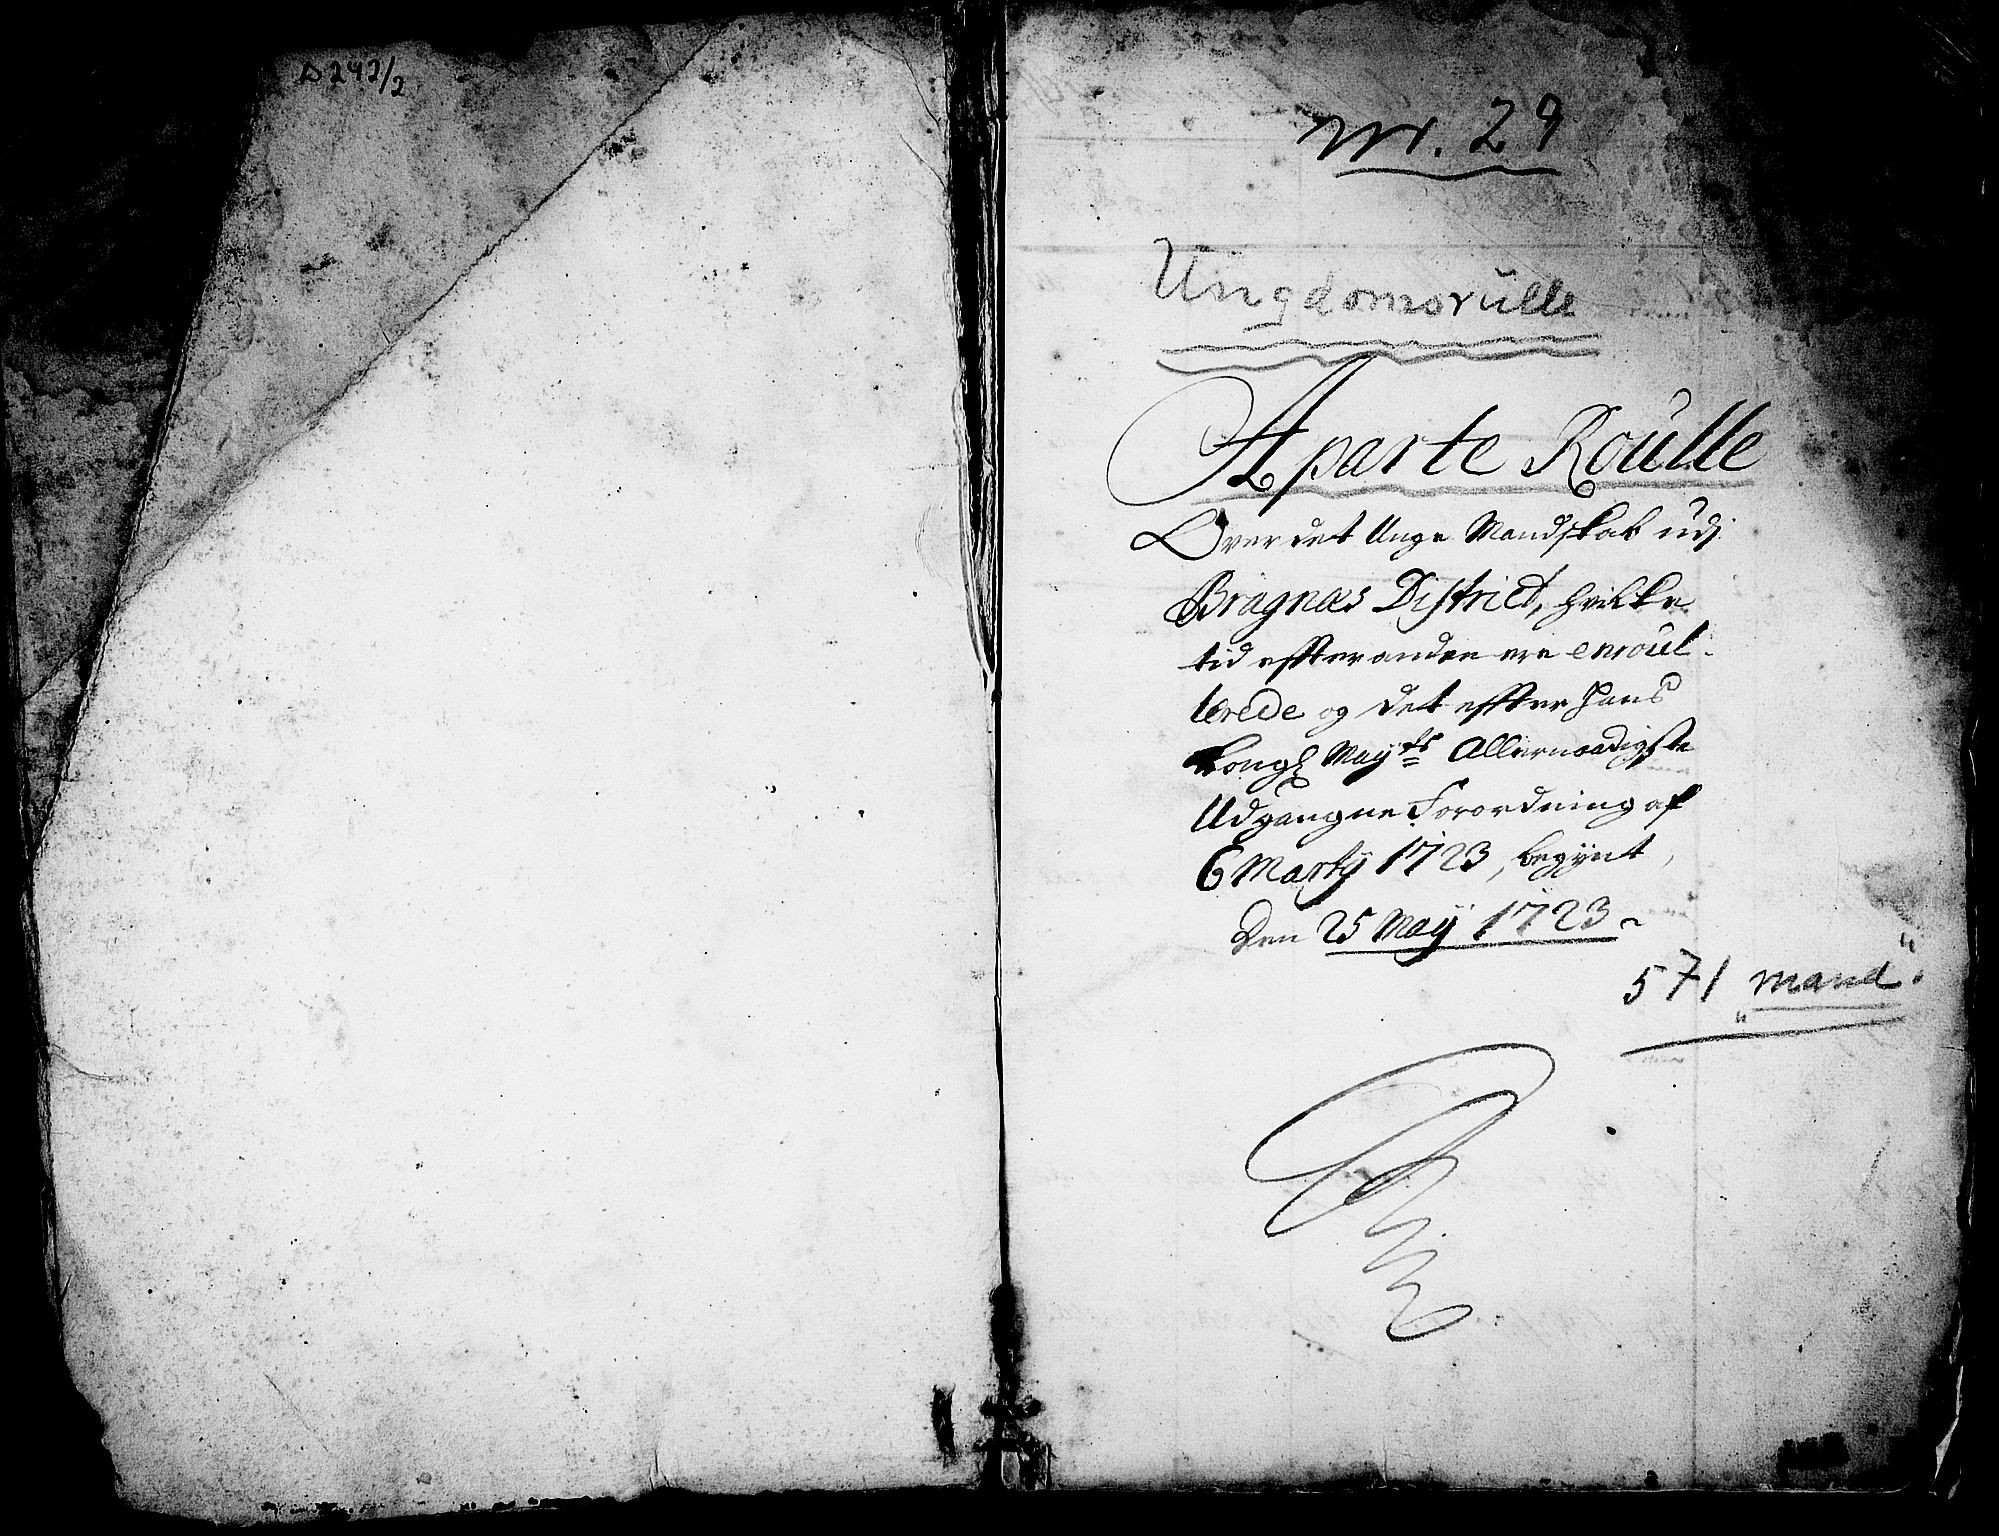 D 242/2
Nr. 29
Ungdomsrulle
Aparte Roulle
Over det Unge Mandskab udj
Bragnæs District, hvilke
tid effter anden ere enroul-
lerede og det effter Hans
Kongl May^ts Allernaadigste
Udgangne Forordning af
6 Marty 1723, begynt
Den 25 May 1723
571 mand